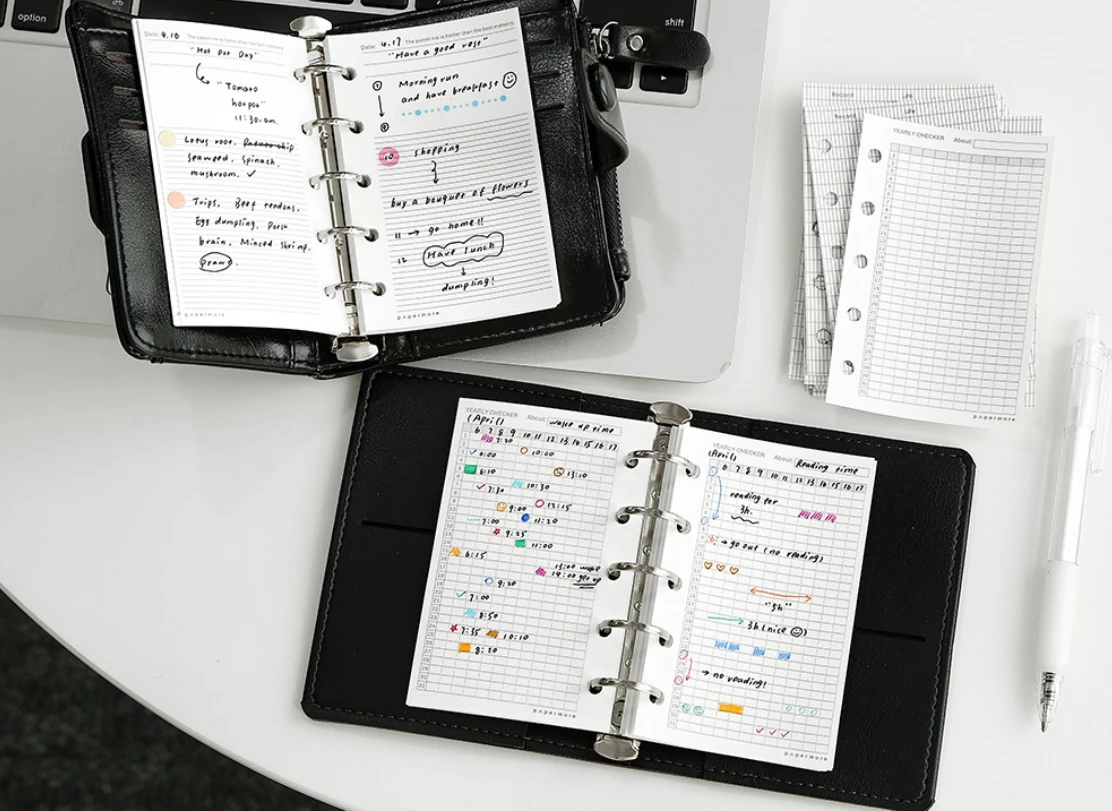 option
shift
Date: 4.16 The palest ink is better than the best memory.
"Hot Pot Day"
"Tomato
hotpot"
11:30 am.
Lotus root. Potato chip
seaweed. Spinach.
mushroom. ✓
Trips. Beef tendons.
Egg dumpling. Pork
brain. Minced shrimp.
prawn.
papermore
Date: 4.17 The palest ink is better than the best memory.
"Have a good rest"
Morning run
and have breakfast
10 shopping
buy a bouquet of flowers
11 → go home!!
12 Have lunch
dumpling!
papermore
Record
Life
YEARLY CHECKER About:
papermore
YEARLY CHECKER About: wake up time
(April)
6 7 8 9 10 11 12 13 14 15 16 17
7:20
6:00 10:00
6:10 13:10
7:30 10:30
9:00 12:15
7:00 11:20
9:25
11:00
6:15
13:00 wake
14:00 get up
9:20
7:00
8:50
7:35 10:10
8:20
papermore
YEARLY CHECKER About: Reading time
(April)
6 7 8 9 10 11 12 13 14 15 16 17
reading for
3h.
→ go out (no reading)
"5h"
3h (nice ☺)
→ no reading!
papermore